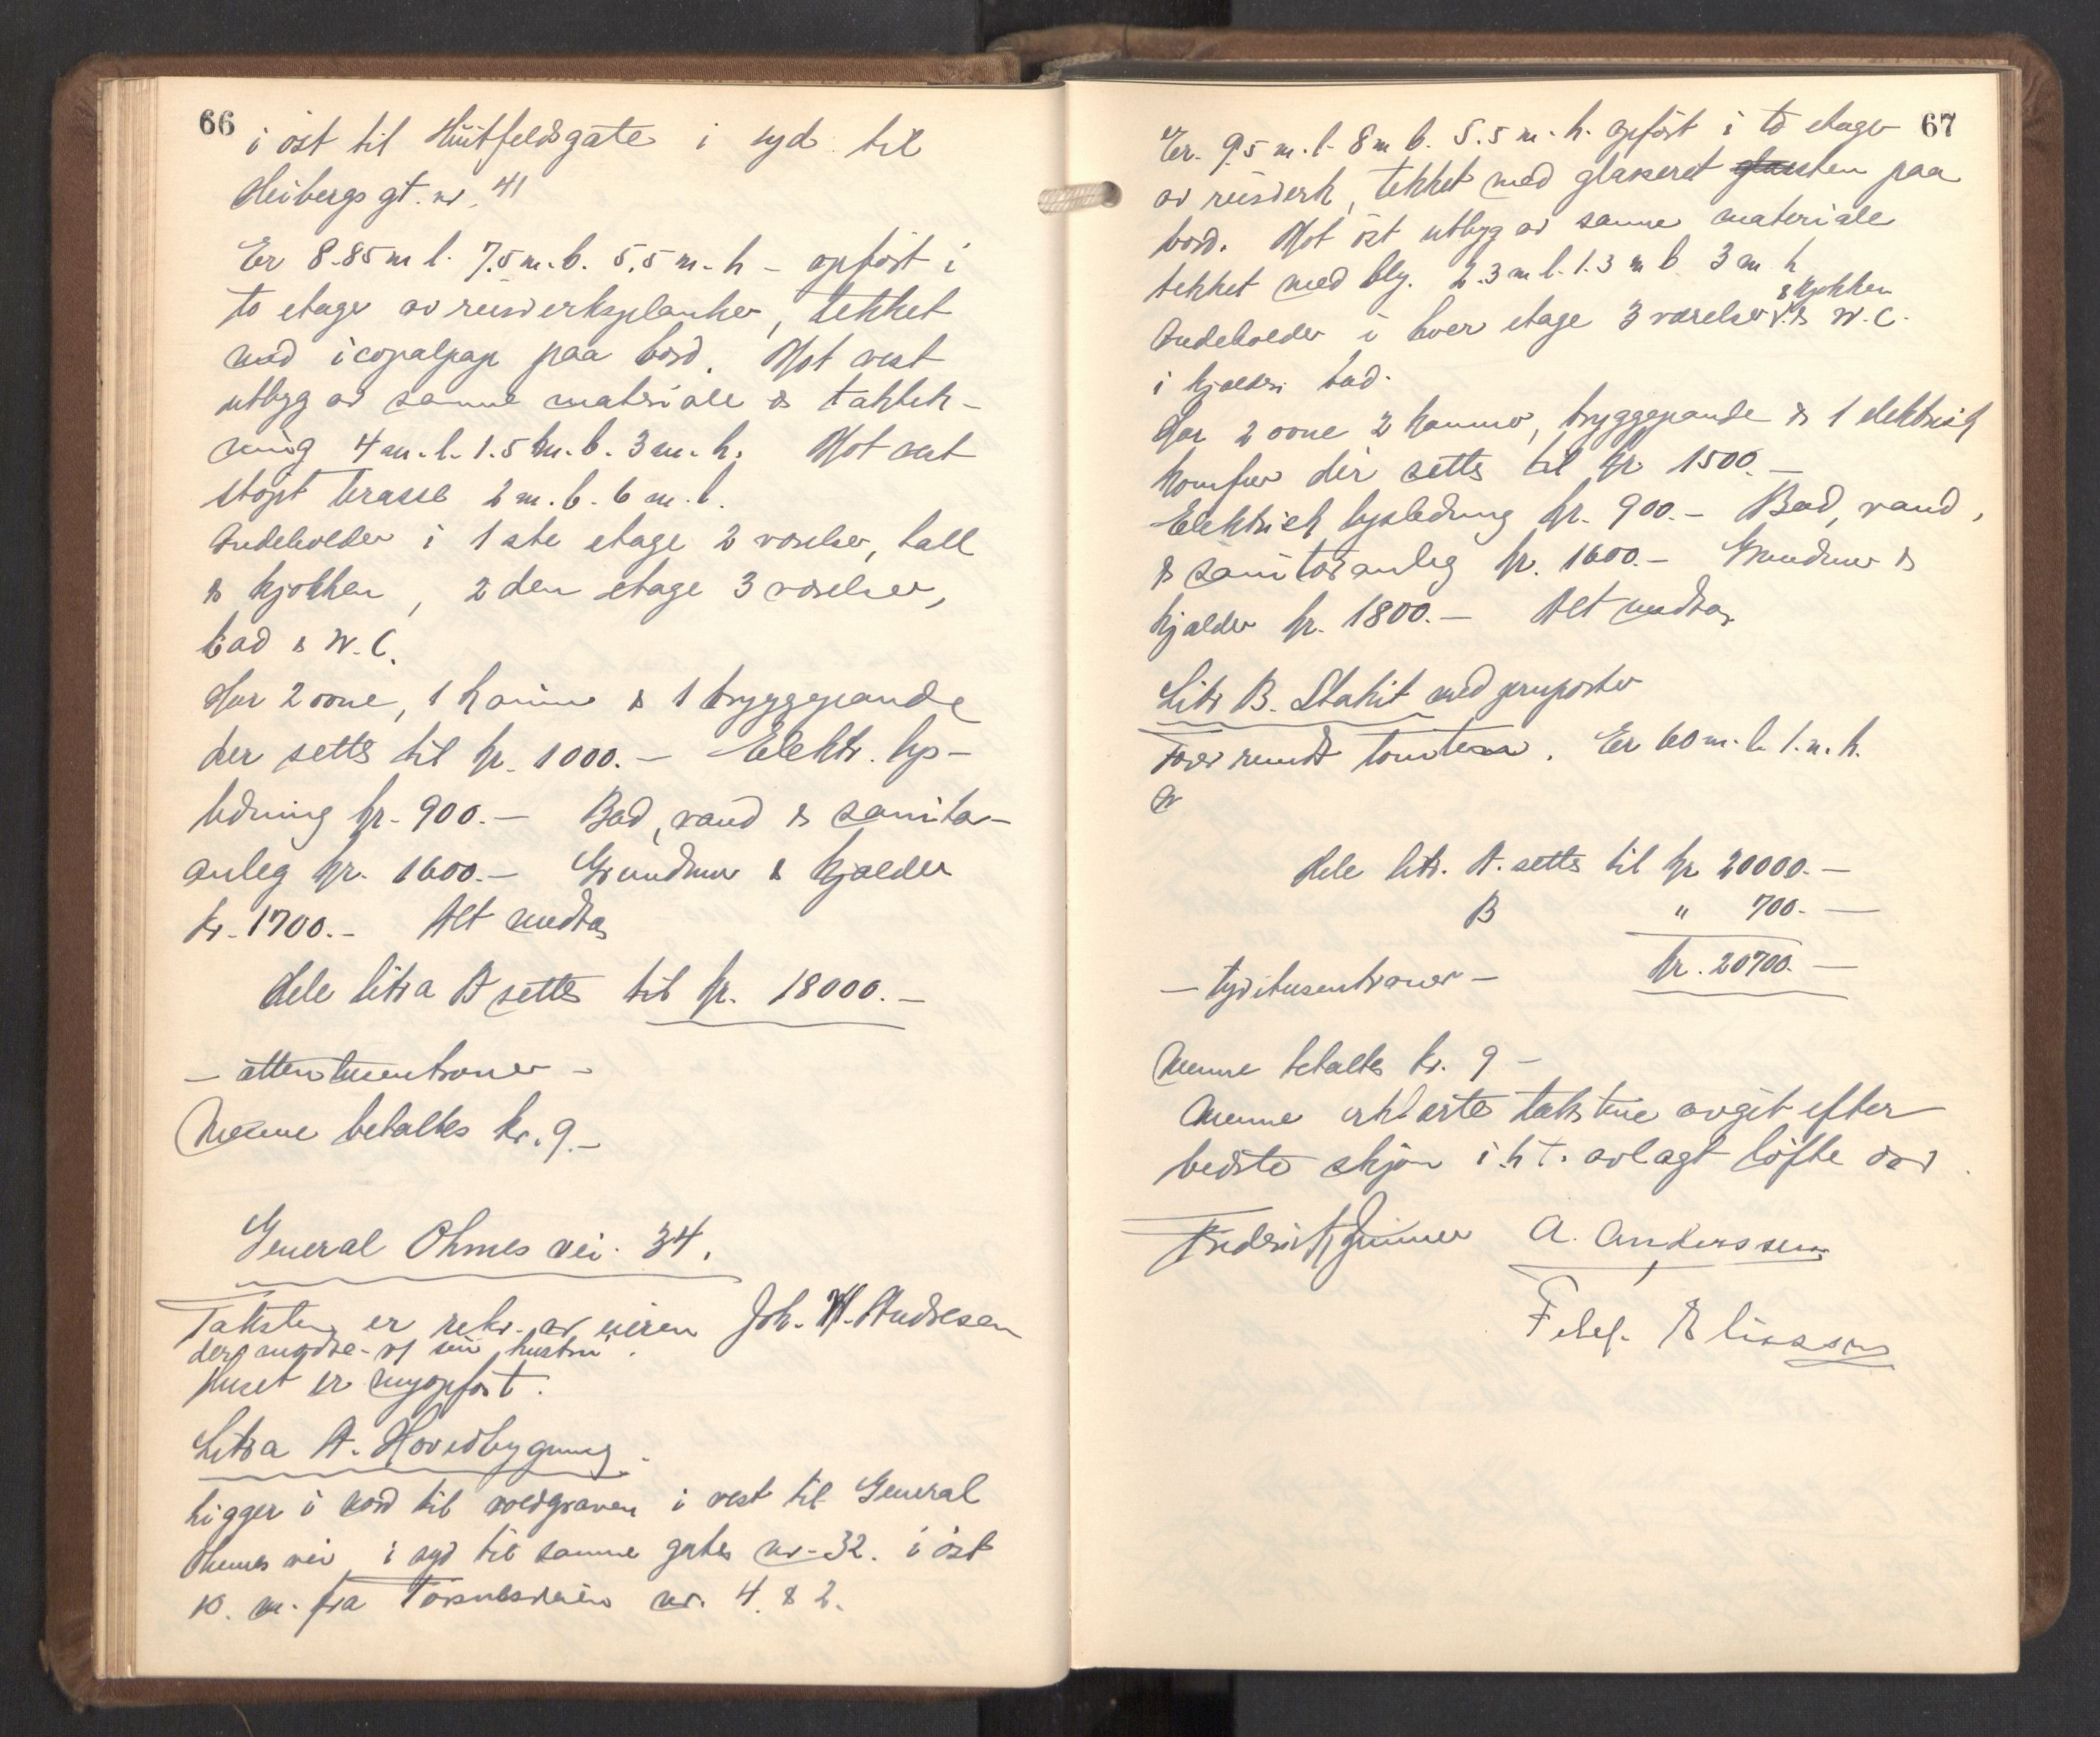 66
i öst til Huitfeldsgate i syd til
Heibergs gt. nr. 41
Er 8.85 m l. 7.5 m. b. 5.5 m. h - opfört i
to etage av reisverksplanker, tekket
med icopalpap paa bord. Mot vest
utbyg av samme materiale & taktek-
ning 4 m. l. 1.5 m. b. 3 m. h. Mot vest
stöpt terasse 2 m. b. 6 m. l.
Indeholder i 1ste etage 2 værelser, hall
& kjökken, 2den etage 3 værelser,
bad & W.C.
Har 2 ovne, 1 kamin & 1 bryggepande
der settes til kr. 1000.- Elektr. lys-
ledning kr. 900.- Bad, vand & sanita-
anleg kr. 1600.- Grundmur & kjælder
kr. 1700.- Alt medtas
Hele litra A settes til kr. 18000.-
- attentusenkroner -
Menne betaltes kr. 9.-
General Ohmes vei. 34.
Taksten er rekv. av eieren Joh. H. Andresen
der mödte v/ sin hustru.
Huset er nyopfört.
Litra A. Hovedbygning.
Ligger i nord til voldgraven i vest til General
Ohmes vei, i syd til samme gates nr. 32. i öst
10. m. fra Torsnesveien nr. 4. & 2.
67
Er. 9.5 m. l. 8 m b. 5.5 m. h. opfört i to etager
av reisverk, tekket med glasseret glassten paa
bord. Mot öst utbyg av samme materiale
tekket med bly. 2.3 m l. 1.3 m b 3 m h
& kjökken
Indeholder i hver etage 3 værelser & W.C.
i kjælder bad.
Har 2 ovne 2 kaminer, bryggepande & 1 elektrisk
komfur der settes til kr 1500.-
Elektrisk lysledning kr. 900.- Bad, vand,
& sanitæranleg kr. 1600.- Grundmur &
kjælder kr. 1800.- Alt medtas
Litr B. Stakit med jernporter
rundt tomten. Er 60 m. l. 1. m. h.
Hele litr. A. settes til kr 20000.-
B " 700.-
- tyvitusenkroner - kr. 20700.-
Menne betaltes kr. 9 -
Menne erklærte takstene avgit efter
bedste skjön i h. t. avlagt löfte
Fredrik A. Anderssen